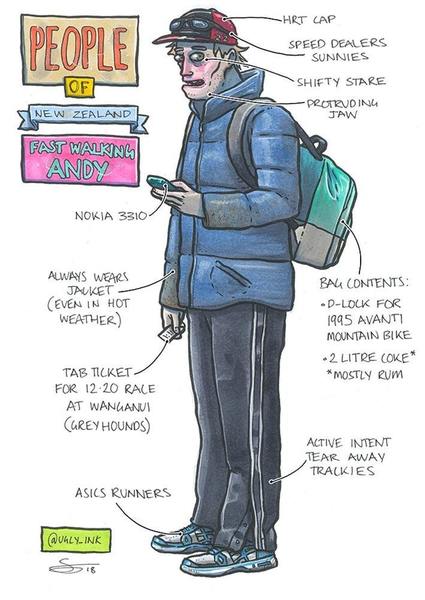 PEOPLE
OF
NEW ZEALAND
FAST WALKING
ANDY
HRT CAP
SPEED DEALERS
SUNNIES
SHIFTY STARE
PROTRUDING
JAW
NOKIA 3310
ALWAYS WEARS
JACKET
(EVEN IN HOT
WEATHER)
BAG CONTENTS:
•D-LOCK FOR
1995 AVANTI
MOUNTAIN BIKE
•2 LITRE COKE*
*MOSTLY RUM
TAB TICKET
FOR 12·20 RACE
AT WANGANUI
(GREYHOUNDS)
ACTIVE INTENT
TEAR AWAY
TRACKIES
ASICS RUNNERS
@UGLY_INK
18